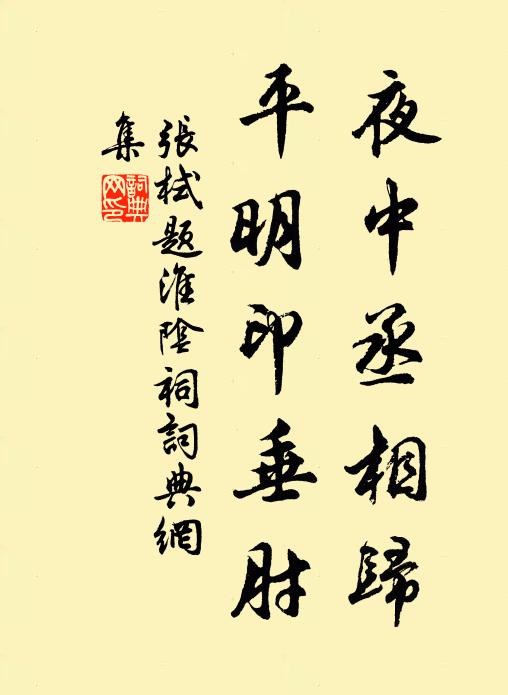 夜中丞相歸
平明印垂肘
張栻題淮陰祠詞典網
集
詞典
网印